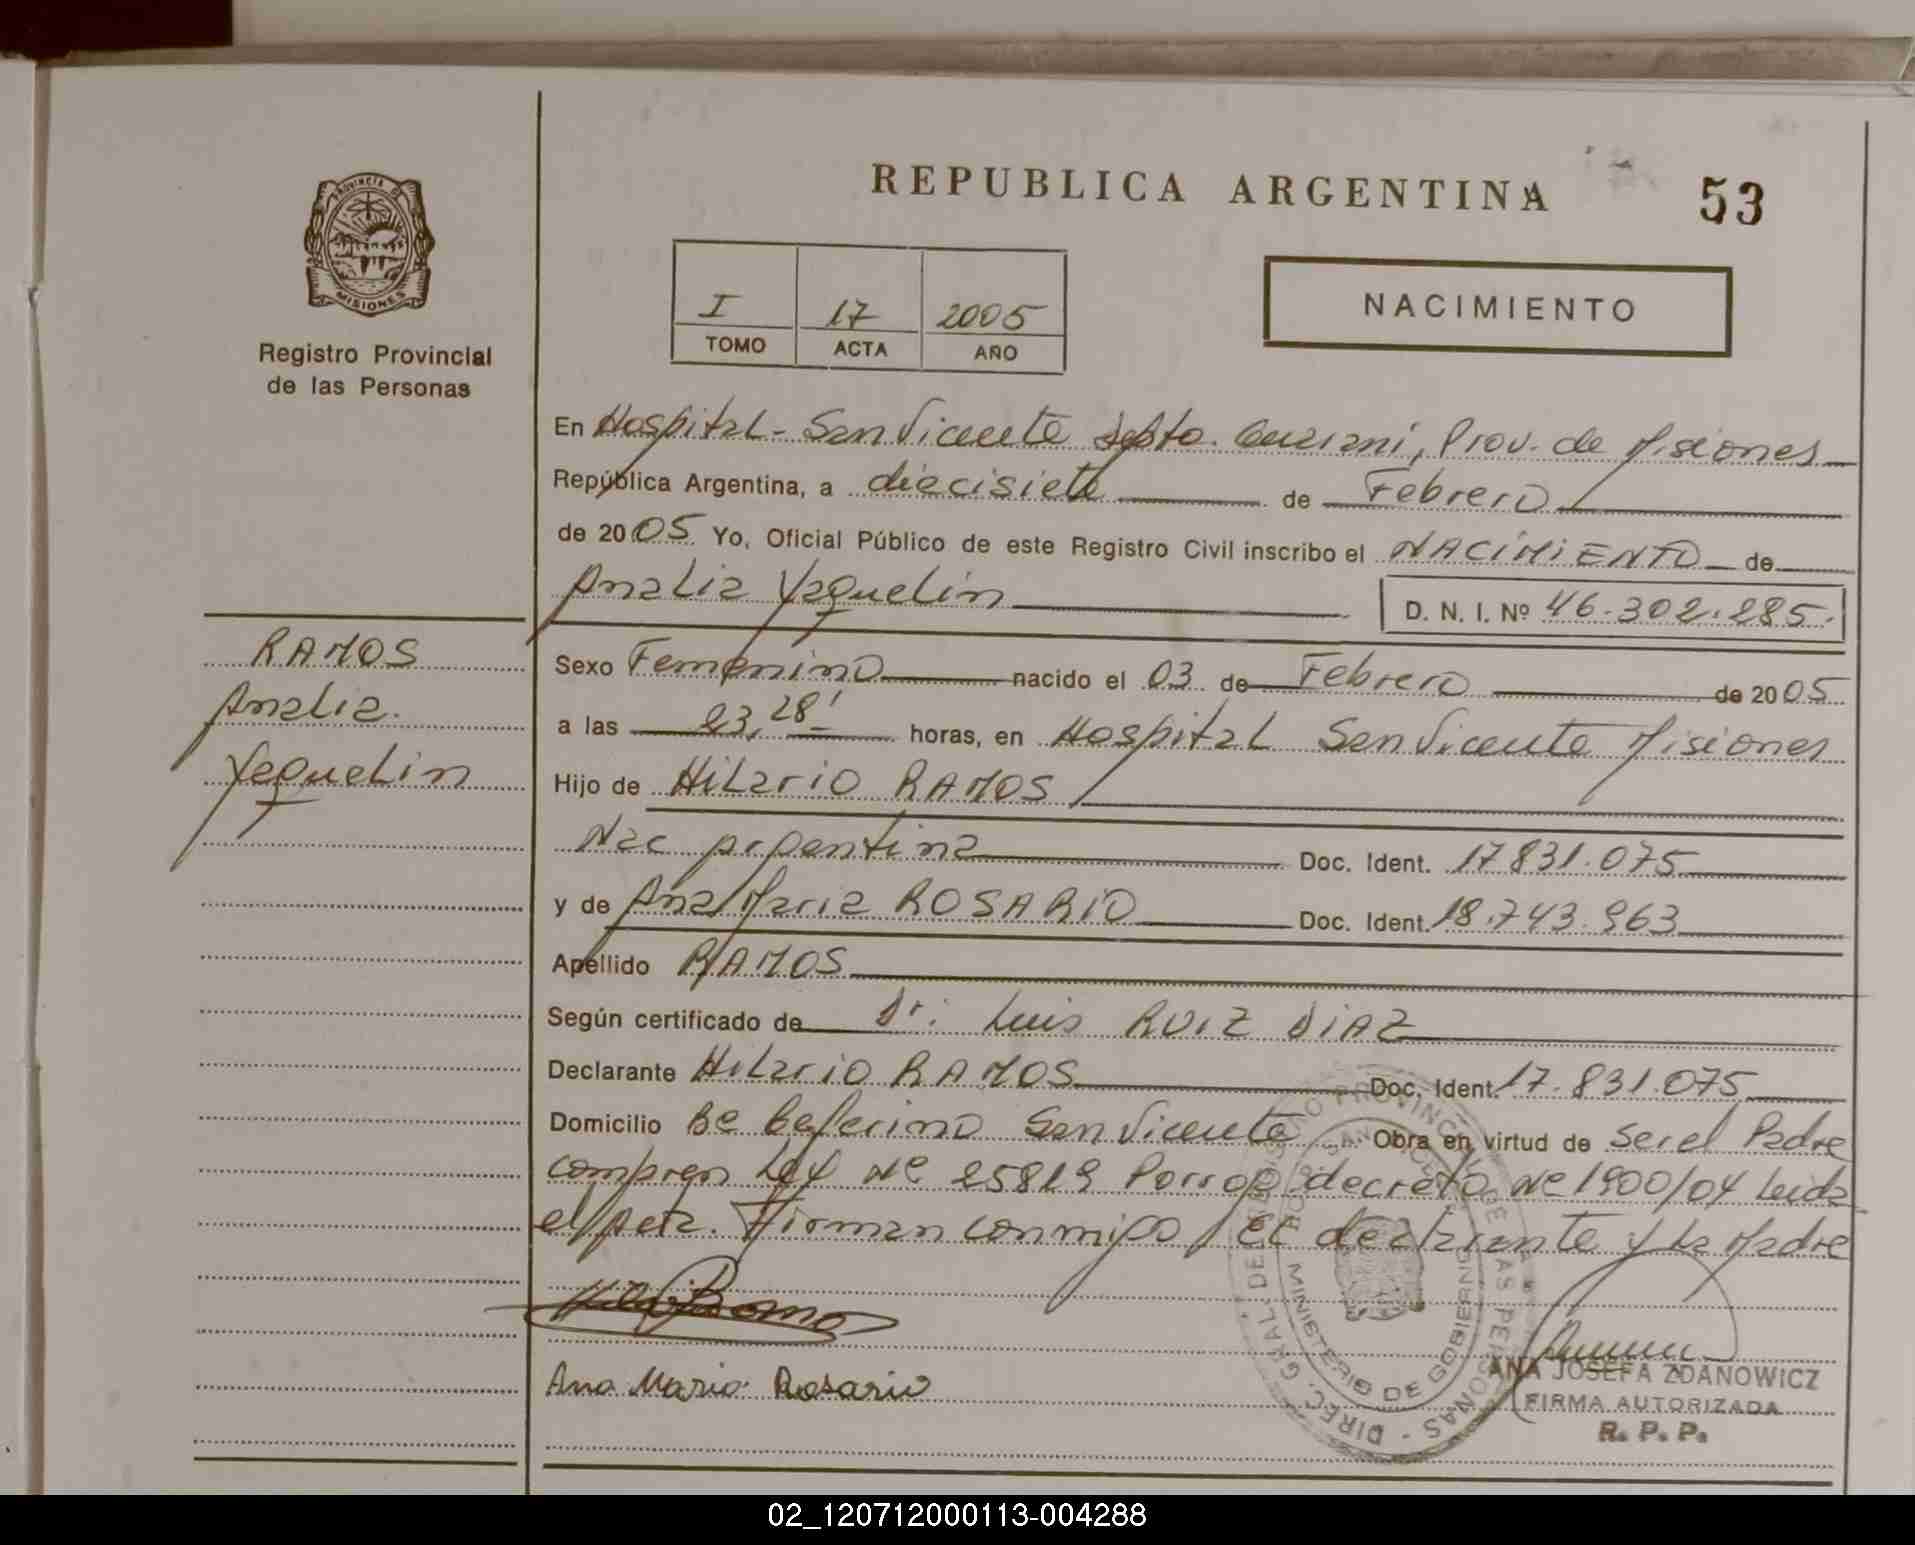 PROVINCIA DE
MISIONES
Registro Provincial
de las Personas
REPUBLICA ARGENTINA
53
I 17 2005
TOMO ACTA AÑO
NACIMIENTO
En Hospital - San Vicente Depto. Guarani, Prov. de Misiones
República Argentina, a diecisiete de Febrero
de 2005 Yo, Oficial Público de este Registro Civil inscribo el NACIMIENTO de
Analia Yaquelin
D. N. I. Nº 46.302.285.
Sexo Femenino nacido el 03 de Febrero de 2005
a las 23,28' horas, en Hospital San Vicente Misiones
Hijo de Hilario RAMOS
Nac Argentina Doc. Ident. 17.831.075
y de Ana Maria ROSARIO Doc. Ident. 18.743.963
Apellido RAMOS
Según certificado de Dr. Luis RUIZ DIAZ
Declarante Hilario RAMOS Doc. Ident. 17.831.075
Domicilio Bº Ceferino San Vicente Obra en virtud de ser el Padre
compren Ley Nº 25819 Porrog decreto Nº 1900/04 Leida
el Acta. Firman conmigo el declarante y la Madre
RAMOS
Analia.
Yaquelin
Ana Maria Rosario
ANA JOSEFA ZDANOWICZ
FIRMA AUTORIZADA
R. P. P.
MINISTERIO DE GOBIERNO
02_120712000113-004288